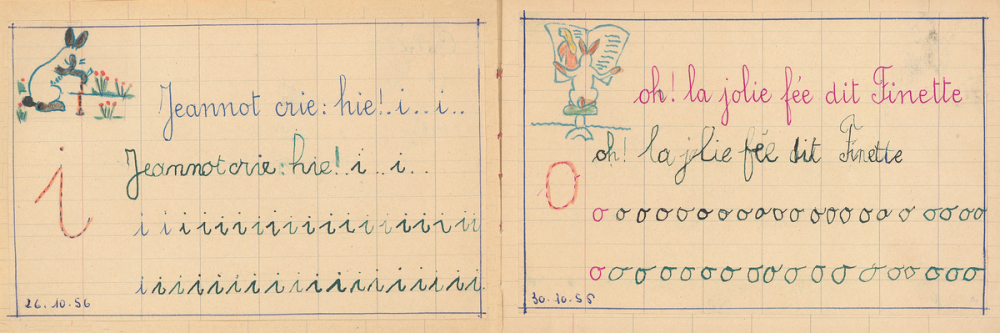 Jeannot crie: hie!.i..i..
i
Jeannot crie: hie!.i..i..
i i i i i i i i i i i i i i i i i i i i
i i i i i i i i i i i i i i i i i i i i
26.10.56
oh! la jolie fée dit Finette
F
oh! la jolie fée dit Finette
o
o o o o o o o o o o o o o o o o o o o o o
o o o o o o o o o o o o o o o o o o
30.10.56